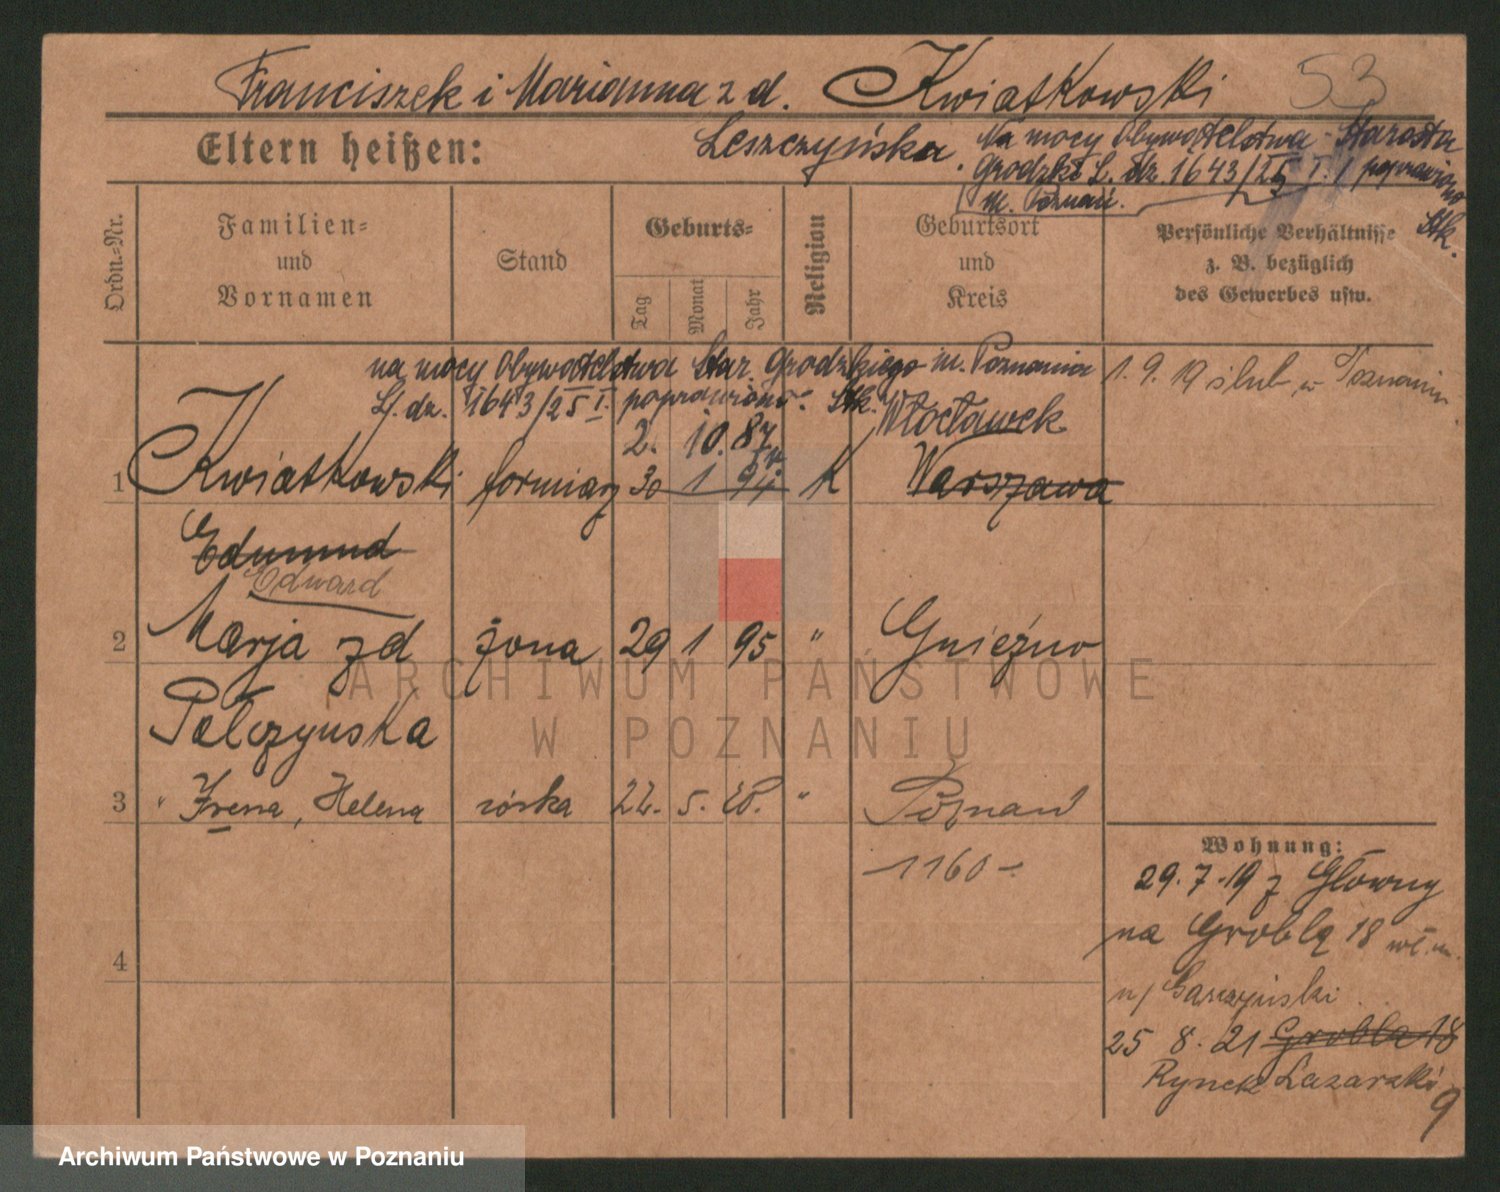 Franciszek i Marianna z d. Kwiatkowski 53
Eltern heißen: Leszczyńska.
Na mocy Obywatelstwa Starosta
Grodzki L. dz. 1643/25 I. / poprawiono
m. Poznań. Stk.
Ordn.-Nr.
Familien- und Vornamen
Stand
Geburts-
Tag
Monat
Jahr
Religion
Geburtsort und Kreis
Persönliche Verhältnisse
z. B. bezüglich
des Gewerbes usw.
na mocy Obywatelstwa Star. Grodzkiego m. Poznania
L. dz. 1643/25 I. poprawiono. Stk.
1. 9. 19 ślub w Poznaniu
2. 10. 87 Włocławek
1 Kwiatkowski formiarz 30 1 94 K Warszawa
Edmund
Edward
2 Marja z d żona 29 1 95 " Gniezno
Pełczyńska
3 " Irena, Helena córka 22. 5. 20. " Poznań
1160
4
Wohnung:
29. 7. 19 z Główny
na Groblą 18
u/ Garczyński
25 8. 21 Grobla 18
Rynek Lazarski
9
ARCHIWUM PAŃSTWOWE
W POZNANIU
Archiwum Państwowe w Poznaniu